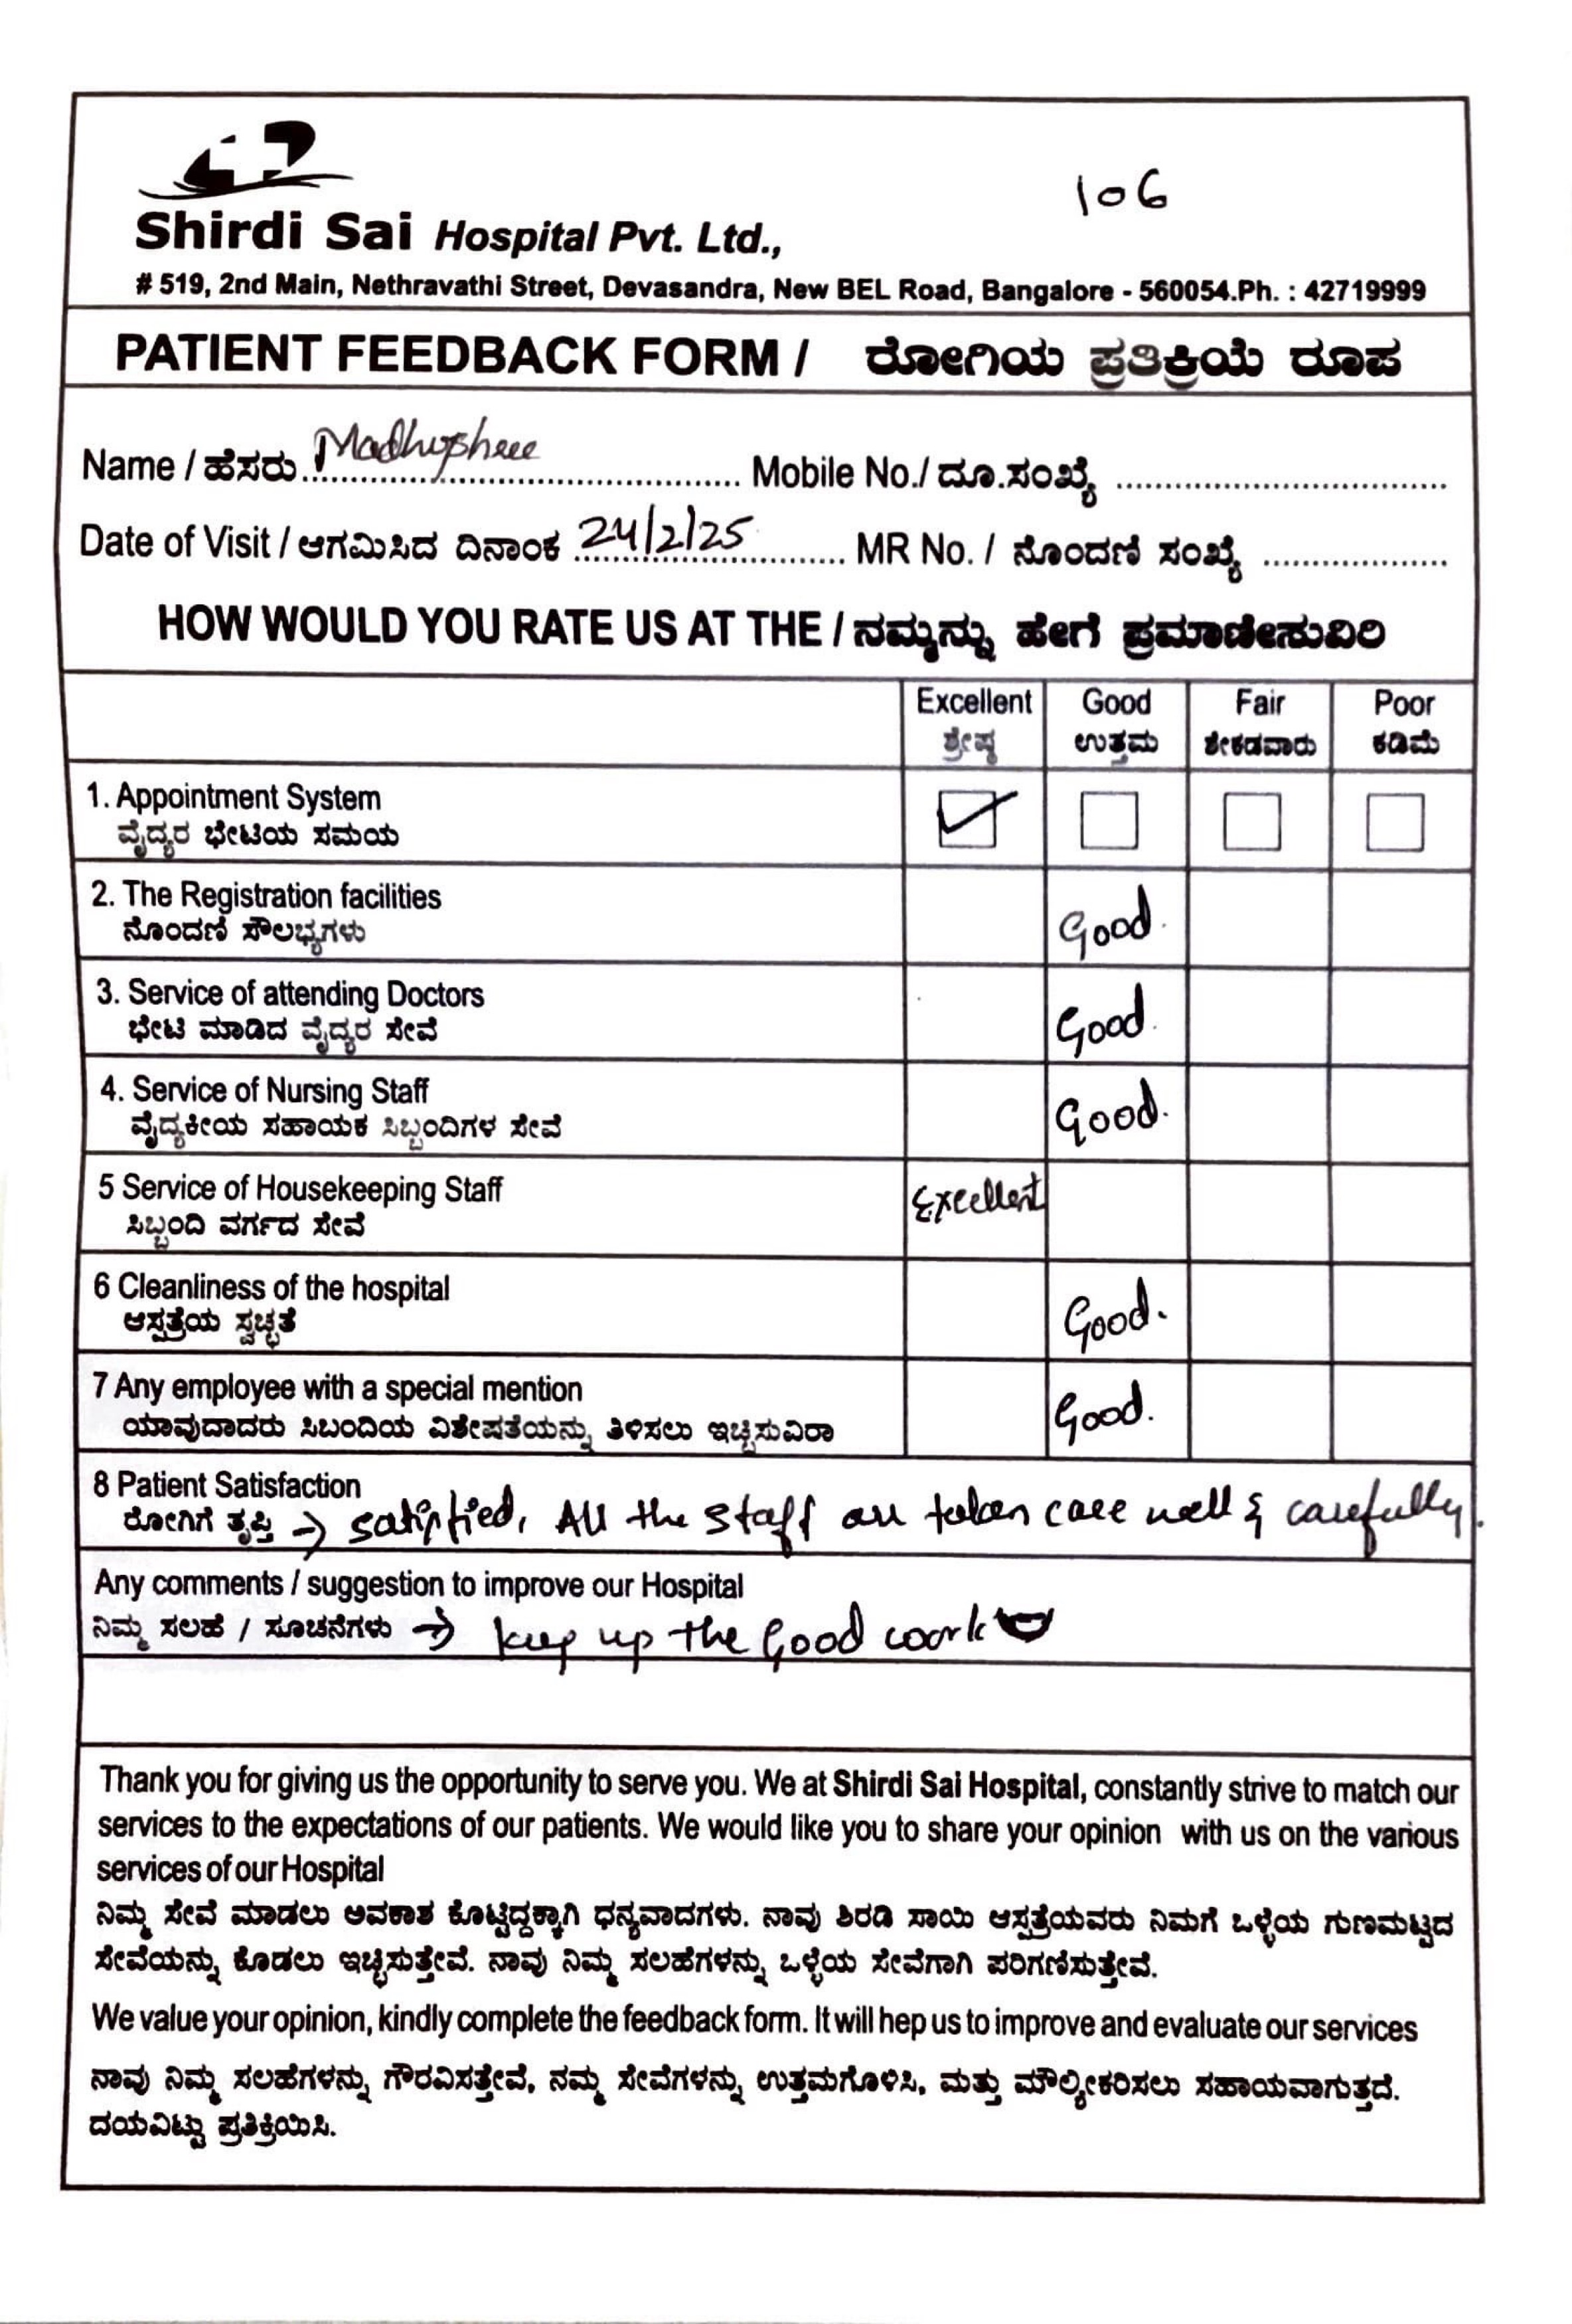 106
Shirdi Sai Hospital Pvt. Ltd.,
# 519, 2nd Main, Nethravathi Street, Devasandra, New BEL Road, Bangalore - 560054.Ph. : 42719999
PATIENT FEEDBACK FORM / ರೋಗಿಯ ಪ್ರತಿಕ್ರಿಯೆ ರೂಪ
Name / ಹೆಸರು Madhushree Mobile No./ ದೂ.ಸಂಖ್ಯೆ
Date of Visit / ಆಗಮಿಸಿದ ದಿನಾಂಕ 24/2/25 MR No. / ನೊಂದಣಿ ಸಂಖ್ಯೆ
HOW WOULD YOU RATE US AT THE / ನಮ್ಮನ್ನು ಹೇಗೆ ಪ್ರಮಾಣೀಸುವಿರಿ
Excellent Good Fair Poor
ಶ್ರೇಷ್ಠ ಉತ್ತಮ ಶೇಕಡವಾರು ಕಡಿಮೆ
1. Appointment System
ವೈದ್ಯರ ಭೇಟಿಯ ಸಮಯ
2. The Registration facilities
ನೊಂದಣಿ ಸೌಲಭ್ಯಗಳು Good.
3. Service of attending Doctors
ಭೇಟಿ ಮಾಡಿದ ವೈದ್ಯರ ಸೇವೆ Good.
4. Service of Nursing Staff
ವೈದ್ಯಕೀಯ ಸಹಾಯಕ ಸಿಬ್ಬಂದಿಗಳ ಸೇವೆ Good.
5 Service of Housekeeping Staff Excellent
ಸಿಬ್ಬಂದಿ ವರ್ಗದ ಸೇವೆ
6 Cleanliness of the hospital
ಆಸ್ಪತ್ರೆಯ ಸ್ವಚ್ಛತೆ Good.
7 Any employee with a special mention
ಯಾವುದಾದರು ಸಿಬಂದಿಯ ವಿಶೇಷತೆಯನ್ನು ತಿಳಿಸಲು ಇಚ್ಚಿಸುವಿರಾ Good.
8 Patient Satisfaction
ರೋಗಿಗೆ ತೃಪ್ತಿ → satisfied, All the staff are taken care well & carefully.
Any comments / suggestion to improve our Hospital
ನಿಮ್ಮ ಸಲಹೆ / ಸೂಚನೆಗಳು → keep up the Good work
Thank you for giving us the opportunity to serve you. We at Shirdi Sai Hospital, constantly strive to match our
services to the expectations of our patients. We would like you to share your opinion with us on the various
services of our Hospital
ನಿಮ್ಮ ಸೇವೆ ಮಾಡಲು ಅವಕಾಶ ಕೊಟ್ಟಿದ್ದಕ್ಕಾಗಿ ಧನ್ಯವಾದಗಳು. ನಾವು ಶಿರಡಿ ಸಾಯಿ ಆಸ್ಪತ್ರೆಯವರು ನಿಮಗೆ ಒಳ್ಳೆಯ ಗುಣಮಟ್ಟದ
ಸೇವೆಯನ್ನು ಕೊಡಲು ಇಚ್ಚಿಸುತ್ತೇವೆ. ನಾವು ನಿಮ್ಮ ಸಲಹೆಗಳನ್ನು ಒಳ್ಳೆಯ ಸೇವೆಗಾಗಿ ಪರಿಗಣಿಸುತ್ತೇವೆ.
We value your opinion, kindly complete the feedback form. It will hep us to improve and evaluate our services
ನಾವು ನಿಮ್ಮ ಸಲಹೆಗಳನ್ನು ಗೌರವಿಸತ್ತೇವೆ, ನಮ್ಮ ಸೇವೆಗಳನ್ನು ಉತ್ತಮಗೊಳಿಸಿ, ಮತ್ತು ಮೌಲ್ಯೀಕರಿಸಲು ಸಹಾಯವಾಗುತ್ತದೆ.
ದಯವಿಟ್ಟು ಪ್ರತಿಕ್ರಿಯಿಸಿ.